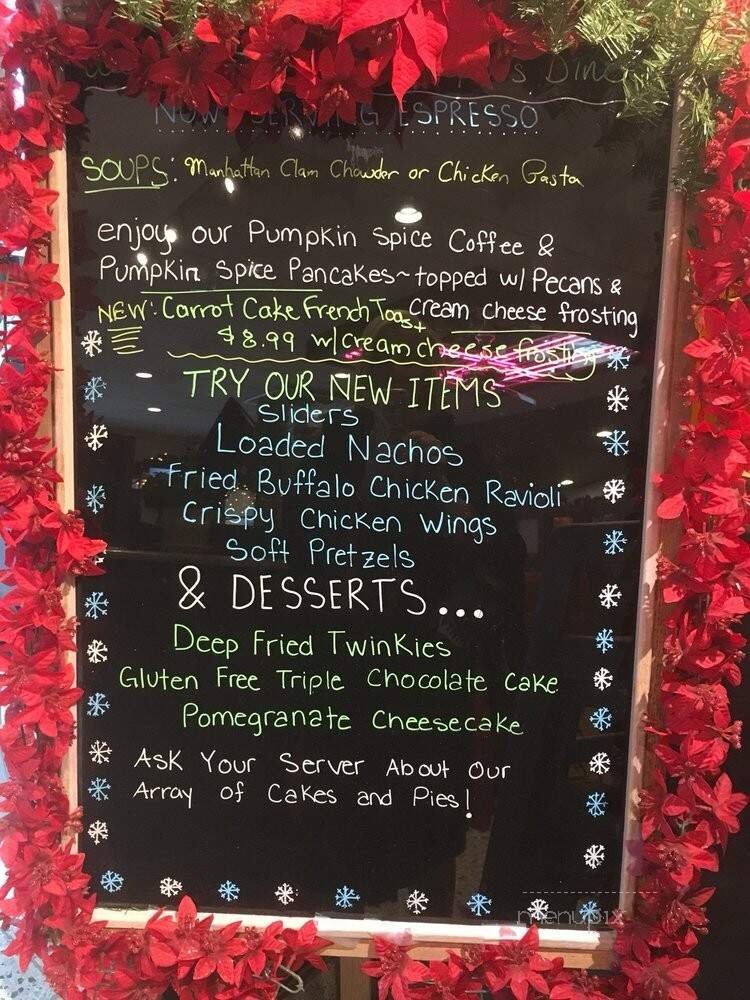 s Dine
NOW SERVING ESPRESSO
SOUPS: Manhattan Clam Chowder or Chicken Pasta
enjoy our Pumpkin Spice Coffee &
Pumpkin Spice Pancakes~topped w/ Pecans &
cream cheese frosting
NEW: Carrot Cake French Toast
$8.99 w/cream cheese frosting
TRY OUR NEW ITEMS
Sliders
Loaded Nachos
Fried Buffalo Chicken Ravioli
Crispy Chicken Wings
Soft Pretzels
& DESSERTS...
Deep Fried Twinkies
Gluten Free Triple Chocolate Cake
Pomegranate Cheesecake
Ask Your Server About Our
Array of Cakes and Pies!
menupix